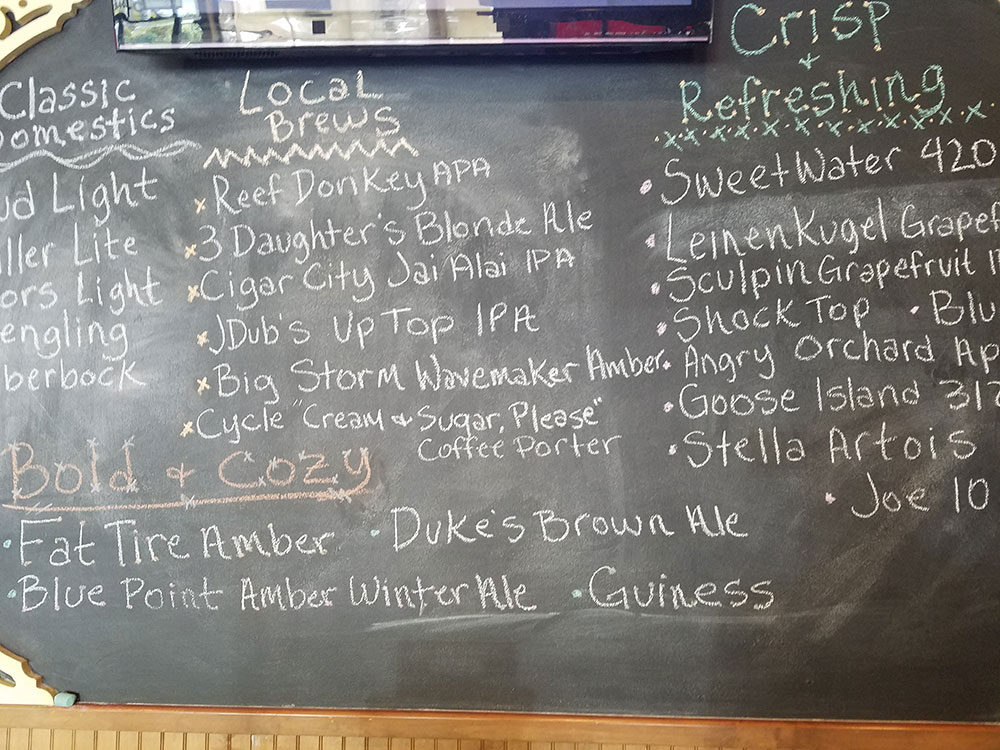 Classic
Domestics
ud Light
ller Lite
ors Light
engling
berbock
Local
Brews
x Reef Donkey APA
x 3 Daughter's Blonde Ale
x Cigar City Jai Alai IPA
x JDub's Up Top IPA
x Big Storm Wavemaker Amber
x Cycle "Cream & Sugar, Please"
Coffee Porter
Crisp
+
Refreshing
• SweetWater 420
• Leinenkugel Grapef
• Sculpin Grapefruit I
• Shock Top • Blu
• Angry Orchard Ap
• Goose Island 312
• Stella Artois
• Joe 10
Bold & Cozy
• Fat Tire Amber • Duke's Brown Ale
• Blue Point Amber Winter Ale • Guiness